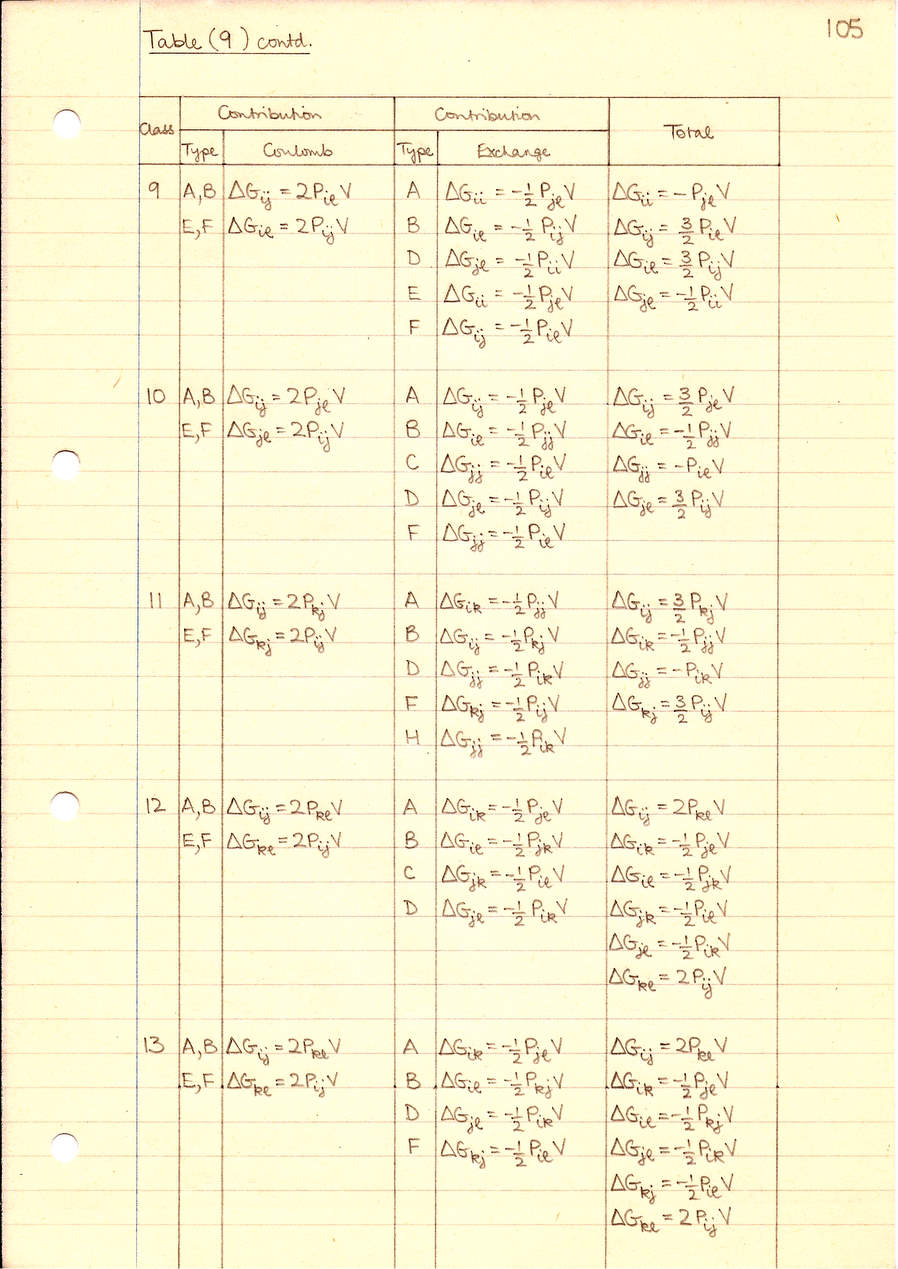 105
Table (9) contd.
Class | Contribution | Contribution | Total
Type | Coulomb | Type | Exchange
9 | A,B | ΔG_ij = 2P_iℓV | A | ΔG_ii = -½P_jℓV | ΔG_ii = -P_jℓV
E,F | ΔG_iℓ = 2P_ijV | B | ΔG_iℓ = -½P_ijV | ΔG_ij = 3/2 P_iℓV
D | ΔG_jℓ = -½P_iiV | ΔG_iℓ = 3/2 P_ijV
E | ΔG_ii = -½P_jℓV | ΔG_jℓ = -½P_iiV
F | ΔG_ij = -½P_iℓV
10 | A,B | ΔG_ij = 2P_jℓV | A | ΔG_ij = -½P_jℓV | ΔG_ij = 3/2 P_jℓV
E,F | ΔG_jℓ = 2P_ijV | B | ΔG_iℓ = -½P_jjV | ΔG_iℓ = -½P_jjV
C | ΔG_jj = -½P_iℓV | ΔG_jj = -P_iℓV
D | ΔG_jℓ = -½P_ijV | ΔG_jℓ = 3/2 P_ijV
F | ΔG_jj = -½P_iℓV
11 | A,B | ΔG_ij = 2P_kjV | A | ΔG_ik = -½P_jjV | ΔG_ij = 3/2 P_kjV
E,F | ΔG_kj = 2P_ijV | B | ΔG_ij = -½P_kjV | ΔG_ik = -½P_jjV
D | ΔG_jj = -½P_ikV | ΔG_jj = -P_ikV
F | ΔG_kj = -½P_ijV | ΔG_kj = 3/2 P_ijV
H | ΔG_jj = -½P_ikV
12 | A,B | ΔG_ij = 2P_kℓV | A | ΔG_ik = -½P_jℓV | ΔG_ij = 2P_kℓV
E,F | ΔG_kℓ = 2P_ijV | B | ΔG_iℓ = -½P_jkV | ΔG_ik = -½P_jℓV
C | ΔG_jk = -½P_iℓV | ΔG_iℓ = -½P_jkV
D | ΔG_jℓ = -½P_ikV | ΔG_jk = -½P_iℓV
ΔG_jℓ = -½P_ikV
ΔG_kℓ = 2P_ijV
13 | A,B | ΔG_ij = 2P_kℓV | A | ΔG_ik = -½P_jℓV | ΔG_ij = 2P_kℓV
E,F | ΔG_kℓ = 2P_ijV | B | ΔG_iℓ = -½P_kjV | ΔG_ik = -½P_jℓV
D | ΔG_jℓ = -½P_ikV | ΔG_iℓ = -½P_kjV
F | ΔG_kj = -½P_iℓV | ΔG_jℓ = -½P_ikV
ΔG_kj = -½P_iℓV
ΔG_kℓ = 2P_ijV